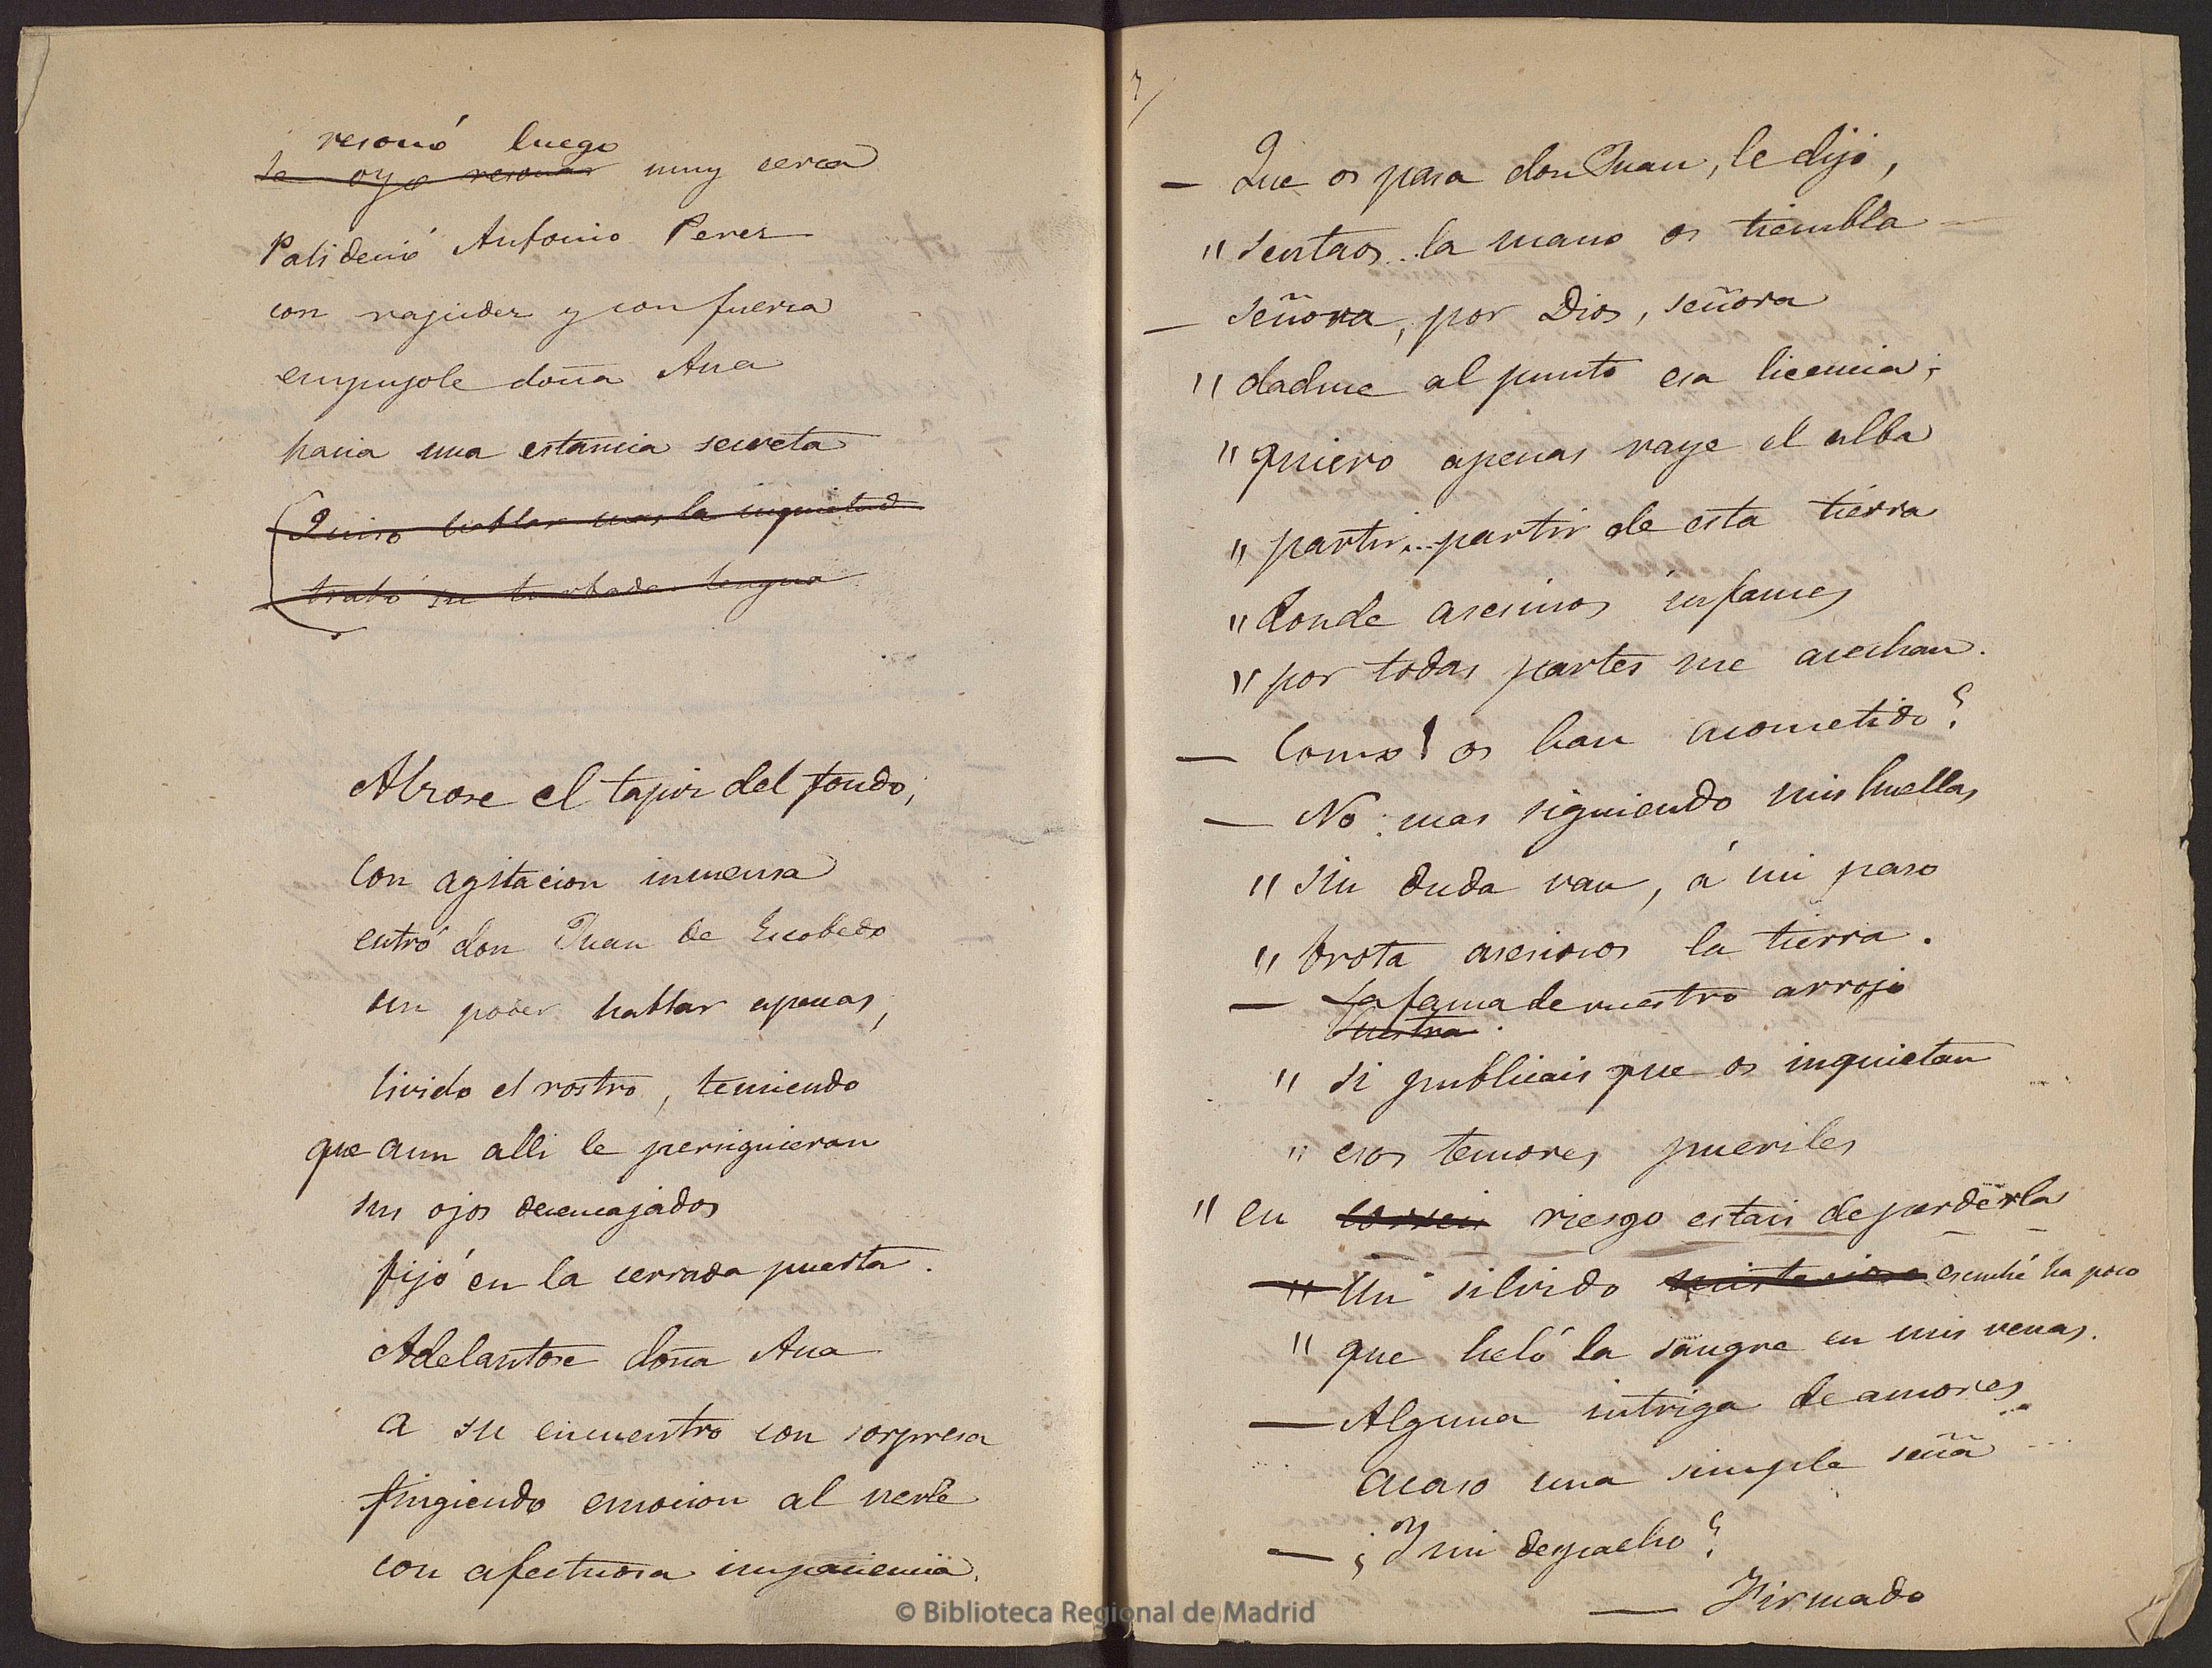 resonó luego
se oye resonar muy cerca
Palideció Antonio Perez
con rapidez y con fuerza
empujole doña Ana
hacia una estancia secreta
Quiso hablar mas la inquietud
trabó su turbada lengua
Abrose el tapiz del fondo,
con agitacion inmensa
entró don Juan de Escobedo
sin poder hablar apenas,
livido el rostro, temiendo
que aun alli le persiguieran
sus ojos desencajados
fijó en la cerrada puerta.
Adelantose doña Ana
a su encuentro con sorpresa
fingiendo emocion al verle
con afectuosa impaciencia.
7/
— Que os pasa don Juan, le dijo,
" sentaos... la mano os tiembla —
— Señora, por Dios, señora
" dadme al punto esa licencia;
" quiero apenas raye el alba
" partir... partir de esta tierra
" donde asesinos infames
" por todas partes me acechan.
— Como! os han acometido?
— No: mas siguiendo mis huellas
" sin duda van, á mi paso
" brota asesinos la tierra.
— La fama de vuestro arrojo
Vuestra
" si publicais que os inquietan
" esos temores pueriles
" en correis riesgo estais de perderla
— " Un silvido misterioso escuché ha poco
" que heló la sangre en mis venas.
— Alguna intriga de amores..
acaso una simple seña ...
— ¿Y mi despacho?
— Firmado
© Biblioteca Regional de Madrid